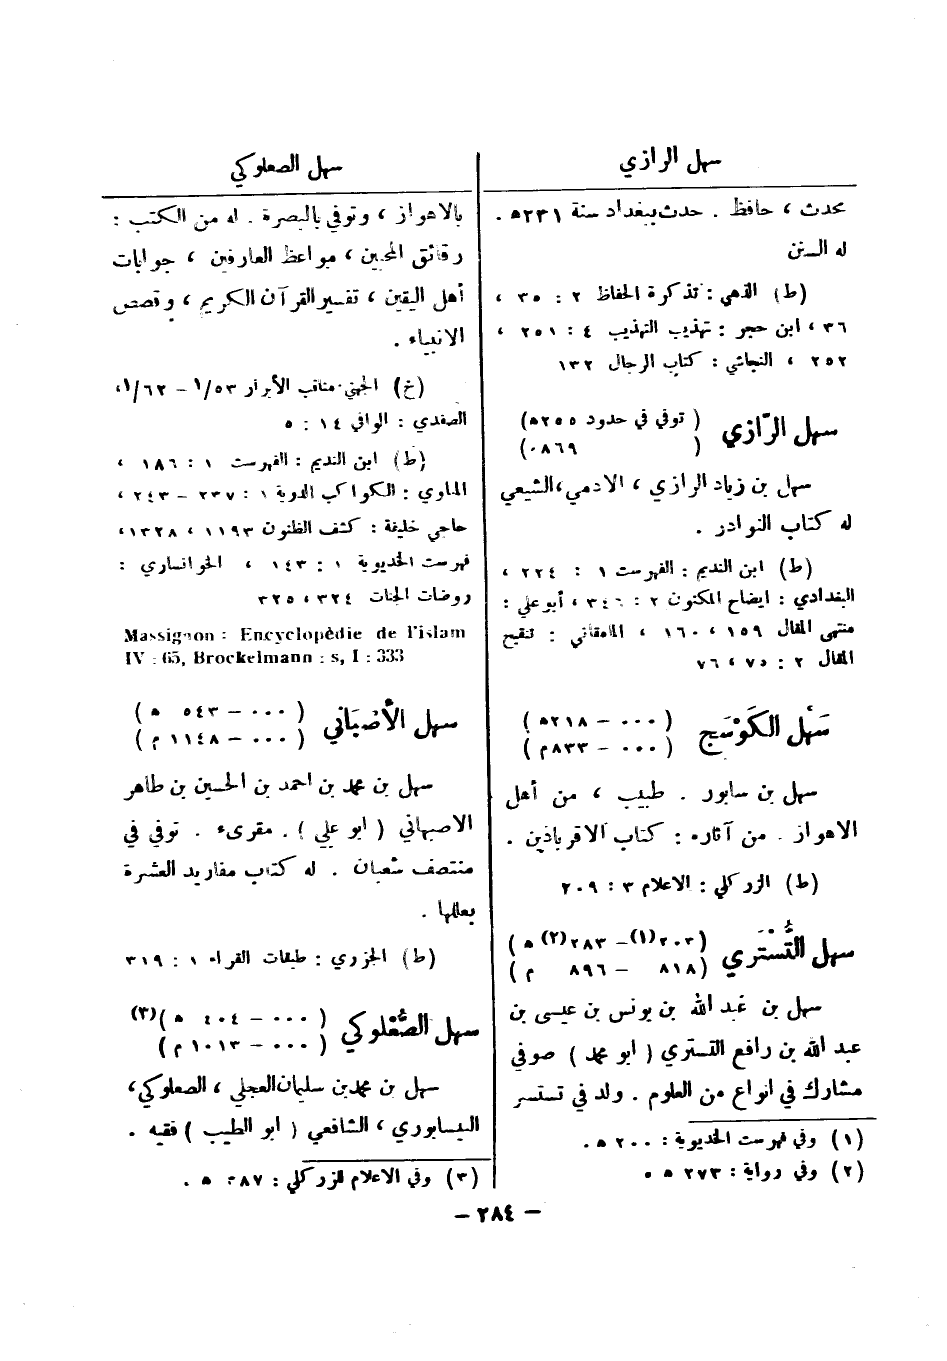 سهل الرازي
محدث ، حافظ . حدث ببغداد سنة ٢٣١ه .
له السنن
(ط) الذهبي : تذكرة الحفاظ ٢ : ٣٥ ،
٣٦ ، ابن حجر : تهذيب التهذيب ٤ : ٢٥١ ،
٢٥٢ ، النجاشي : كتاب الرجال ١٣٢
سهل الرّازي ( توفي في حدود ٢٥٥ه)
( ٨٦٩م)
سهل بن زياد الرازي ، الادمي ، الشيعي
له كتاب النوادر .
(ط) ابن النديم : الفهرست ١ : ٢٢٤ ،
البغدادي : ايضاح المكنون ٢ : ٣٤٦ ، أبو علي :
منتهى المقال ١٥٩ ، ١٦٠ ، المامقاني : تنقيح
المقال ٢ : ٧٥ ، ٧٦
سَهْل الكَوْسَج ( ٠٠٠ – ٢١٨ه )
( ٠٠٠ – ٨٣٣م )
سهل بن سابور . طبيب ، من أهل
الاهواز . من آثاره : كتاب الاقرباذين .
(ط) الزركلي : الاعلام ٣ : ٢٠٩
سهل التُّسْتَري (٢٠٣(١)– ٢٨٣(٢) ه )
(٨١٨ – ٨٩٦ م )
سهل بن عبد الله بن يونس بن عيسى بن
عبد الله بن رافع التستري ( أبو محمد ) صوفي
مشارك في انواع من العلوم . ولد في تستسر
(١) وفي فهرست الخديوية : ٢٠٠ ه .
(٢) وفي رواية : ٢٧٣ ه .
سهل الصعلوكي
بالاهواز ، وتوفي بالبصرة . له من الكتب :
رقائق المحبين ، مواعظ العارفين ، جوابات
أهل اليقين ، تفسير القرآن الكريم ، وقصص
الانبياء .
(خ) الجهني : مناقب الأبرار ٥٣/١ – ٦٢/١،
الصفدي : الوافي ١٤ : ٥
(ط) ابن النديم : الفهرست ١ : ١٨٦ ،
المناوي : الكواكب الدرية ١ : ٢٣٧ – ٢٤٣ ،
حاجي خليفة : كشف الظنون ١١٩٣ ، ١٣٢٨،
فهرست الخديوية ١ : ١٤٣ ، الخوانساري :
روضات الجنات ٣٢٤ ، ٣٢٥
Massignon : Encyclopédie de l'islam
IV : 65, Brockelmann : s, I : 333
سهل الأصْبَهاني ( ٠٠٠ – ٥٤٣ ه )
( ٠٠٠ – ١١٤٨ م )
سهل بن محمد بن احمد بن الحسين بن طاهر
الاصبهاني ( ابو علي ) . مقرىء . توفي في
منتصف شعبان . له كتاب مفاريد العشرة
بعللها .
(ط) الجزري : طبقات القراء ١ : ٣١٩
سهل الصُّعْلوكي ( ٠٠٠ – ٤٠٤ ه )(٣)
( ٠٠٠ – ١٠١٣ م )
سهل بن محمد بن سليمان العجلي ، الصعلوكي،
النيسابوري ، الشافعي ( ابو الطيب ) فقيه .
(٣) وفي الاعلام للزركلي : ٣٨٧ ه .
– ٢٨٤ –